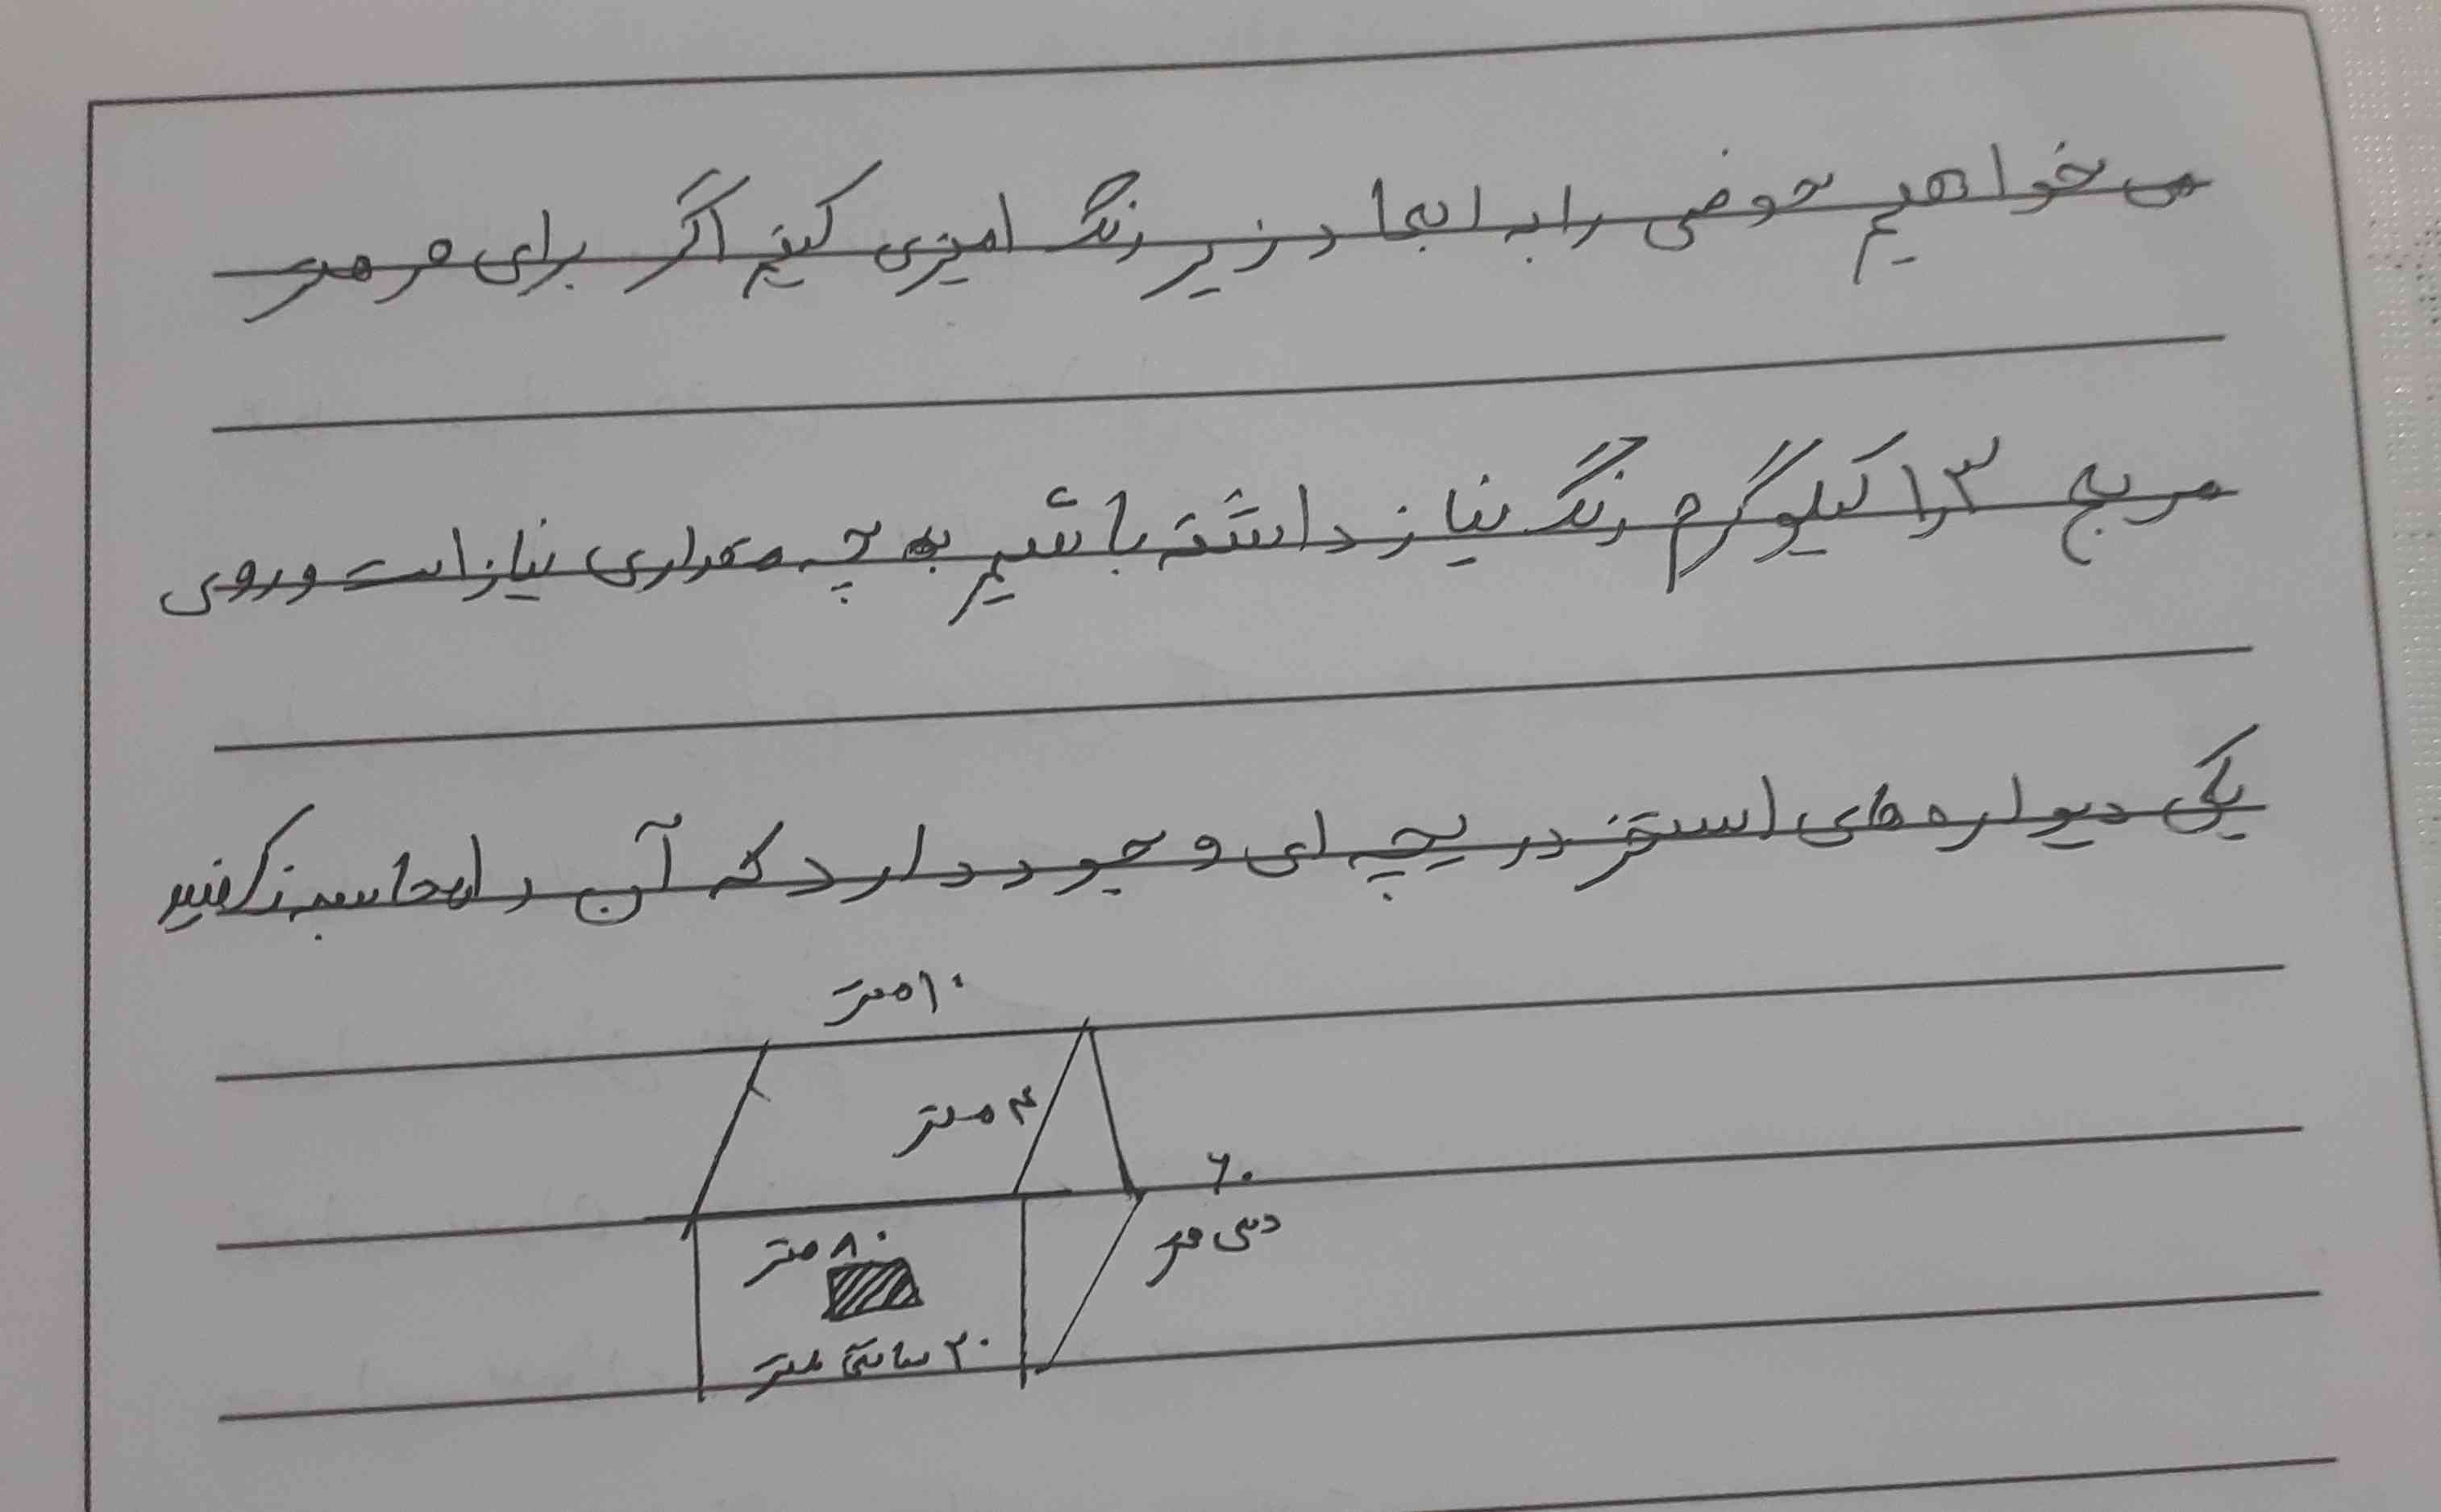 می خواهیم حوضی را به ابعا د زیر رنگ امیزی کنیم اگر برای هر متر
مربع ۱٫۳ کیلوگرم رنگ نیاز داشته باشیم به چه مقداری نیاز است و روی
یکی دیواره های استخر دریچه ای وجود دارد که آن را محاسبه نکنید
۱۰ متر
۴ متر
۶۰
دسی متر
۸۰ متر
۲۰ سانتی متر